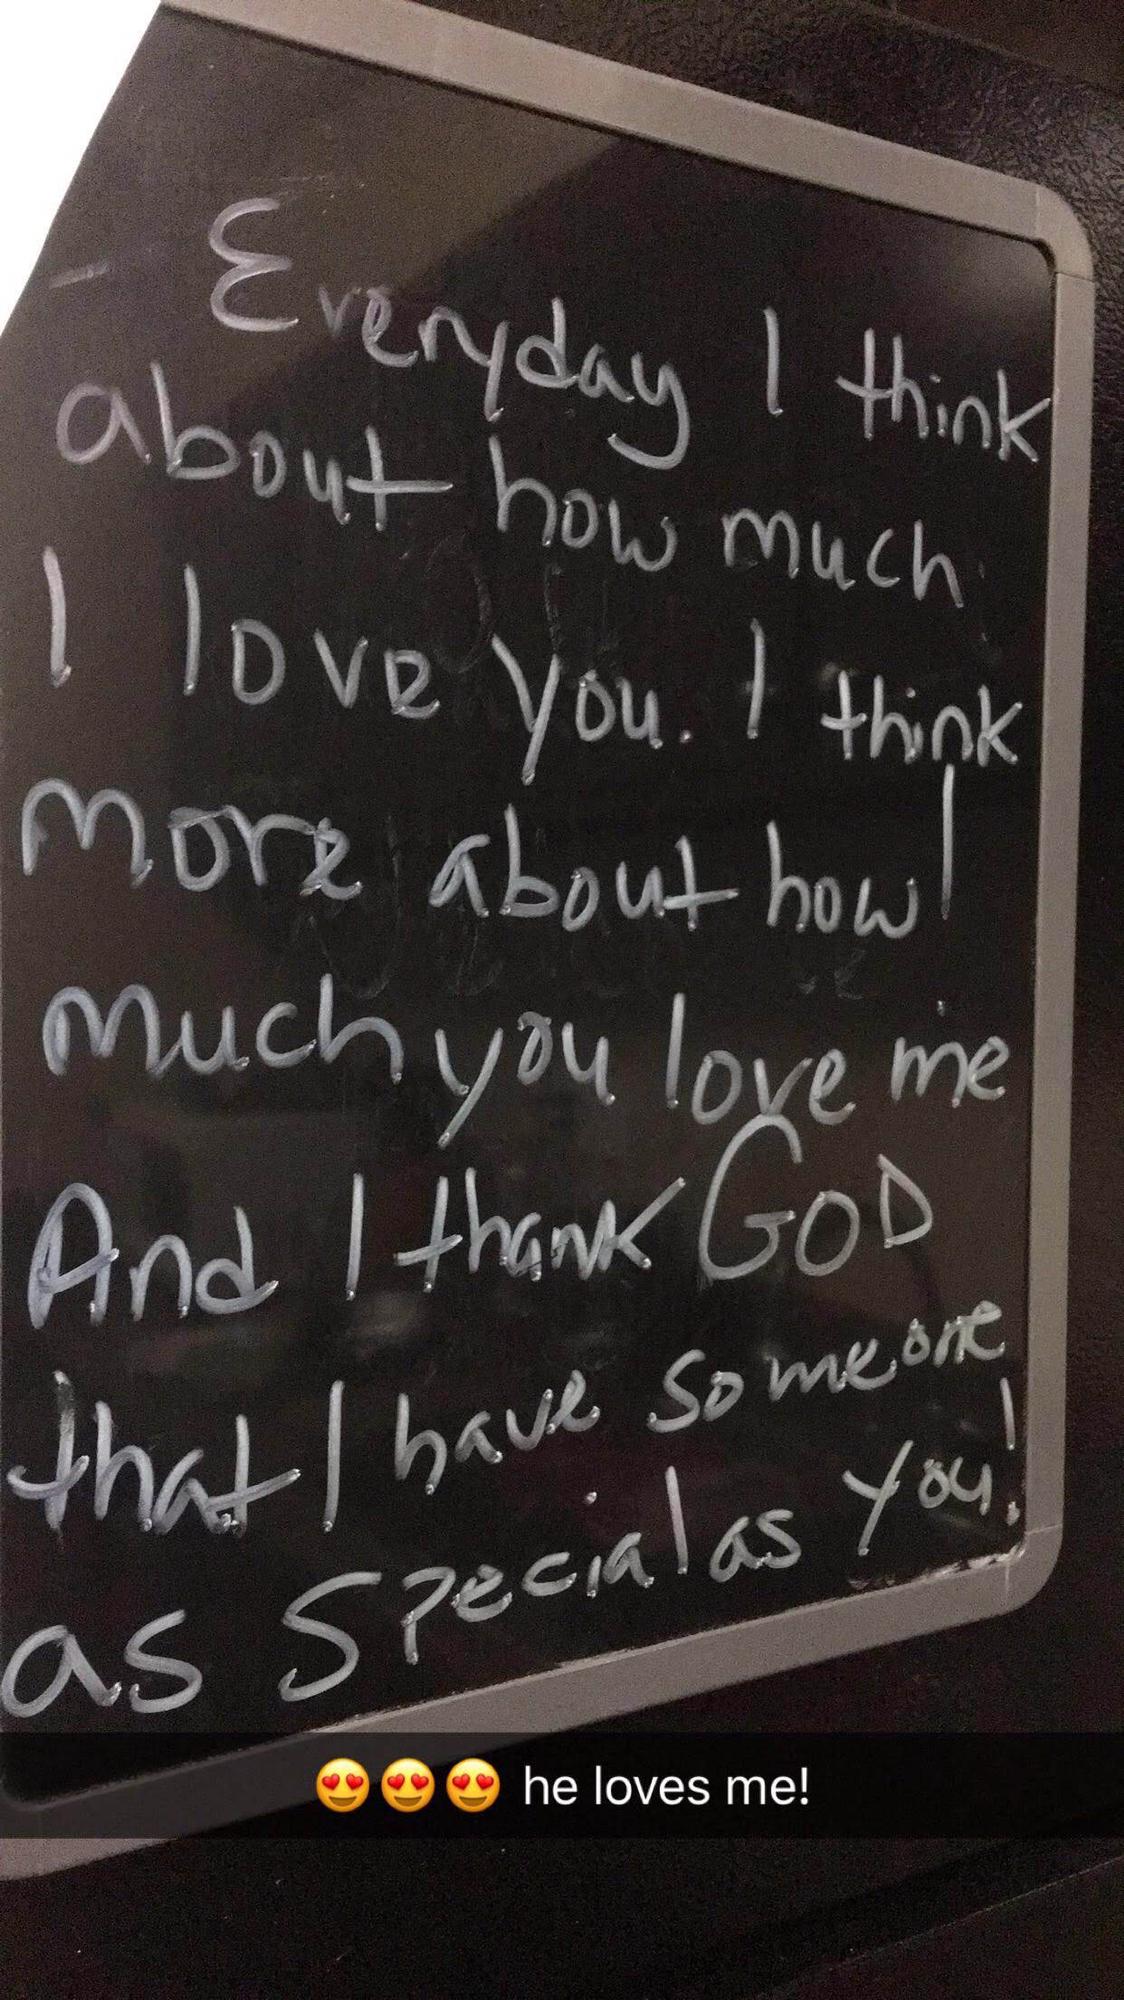 Everyday I think
about how much
I love you. I think
more about how
much you love me
And I thank GOD
that I have someone
as special as you!
😍😍😍 he loves me!